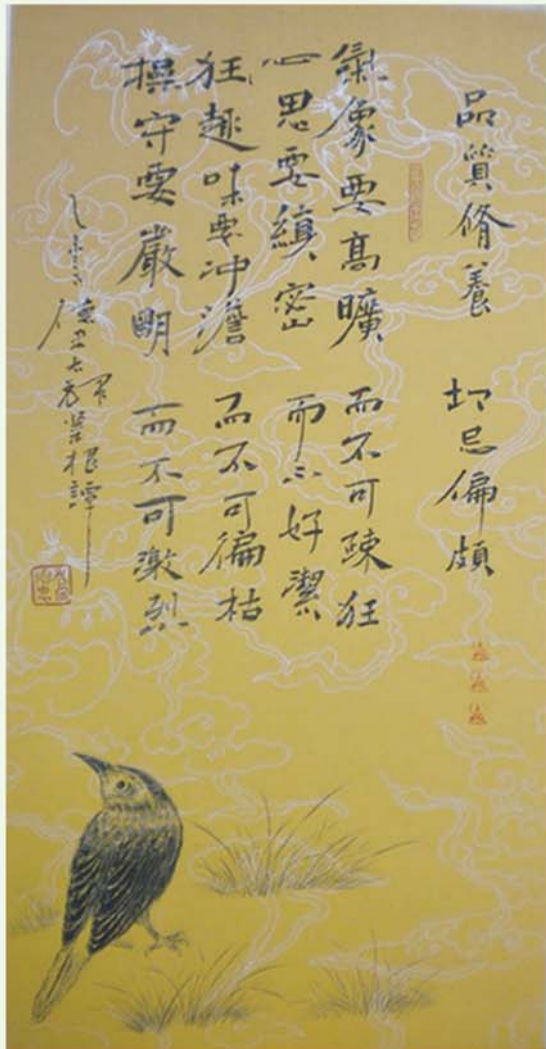 品質脩養 切忌偏頗
氣像要高曠 而不可踈狂
心思要縝密 而不好潔
狂趣味要冲澹 而不可徧枯
操守要嚴明 而不可激烈
菜根譚